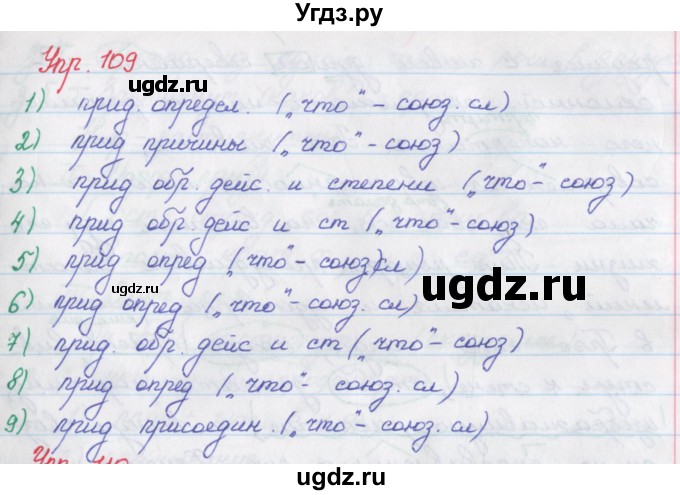 Угдз.ру
Упр. 109
ugdz.ru
1) прид. определ. („что" - союз. сл)
2) прид причины („что" - союз)
3) прид обр. дейс. и степени („что" - союз)
ugdz.ru
4) прид обр дейс и ст („что" - союз)
5) прид опред („что" - союз) сл)
ugdz.ru
ugdz.ru
6) прид опред („что" - союз. сл)
7) прид. обр. дейс и ст („что" - союз)
8) прид опред („что" - союз. сл)
ugdz.ru
9) прид присоедин. („что" - союз. сл)
Упр. 110
ugdz.ru